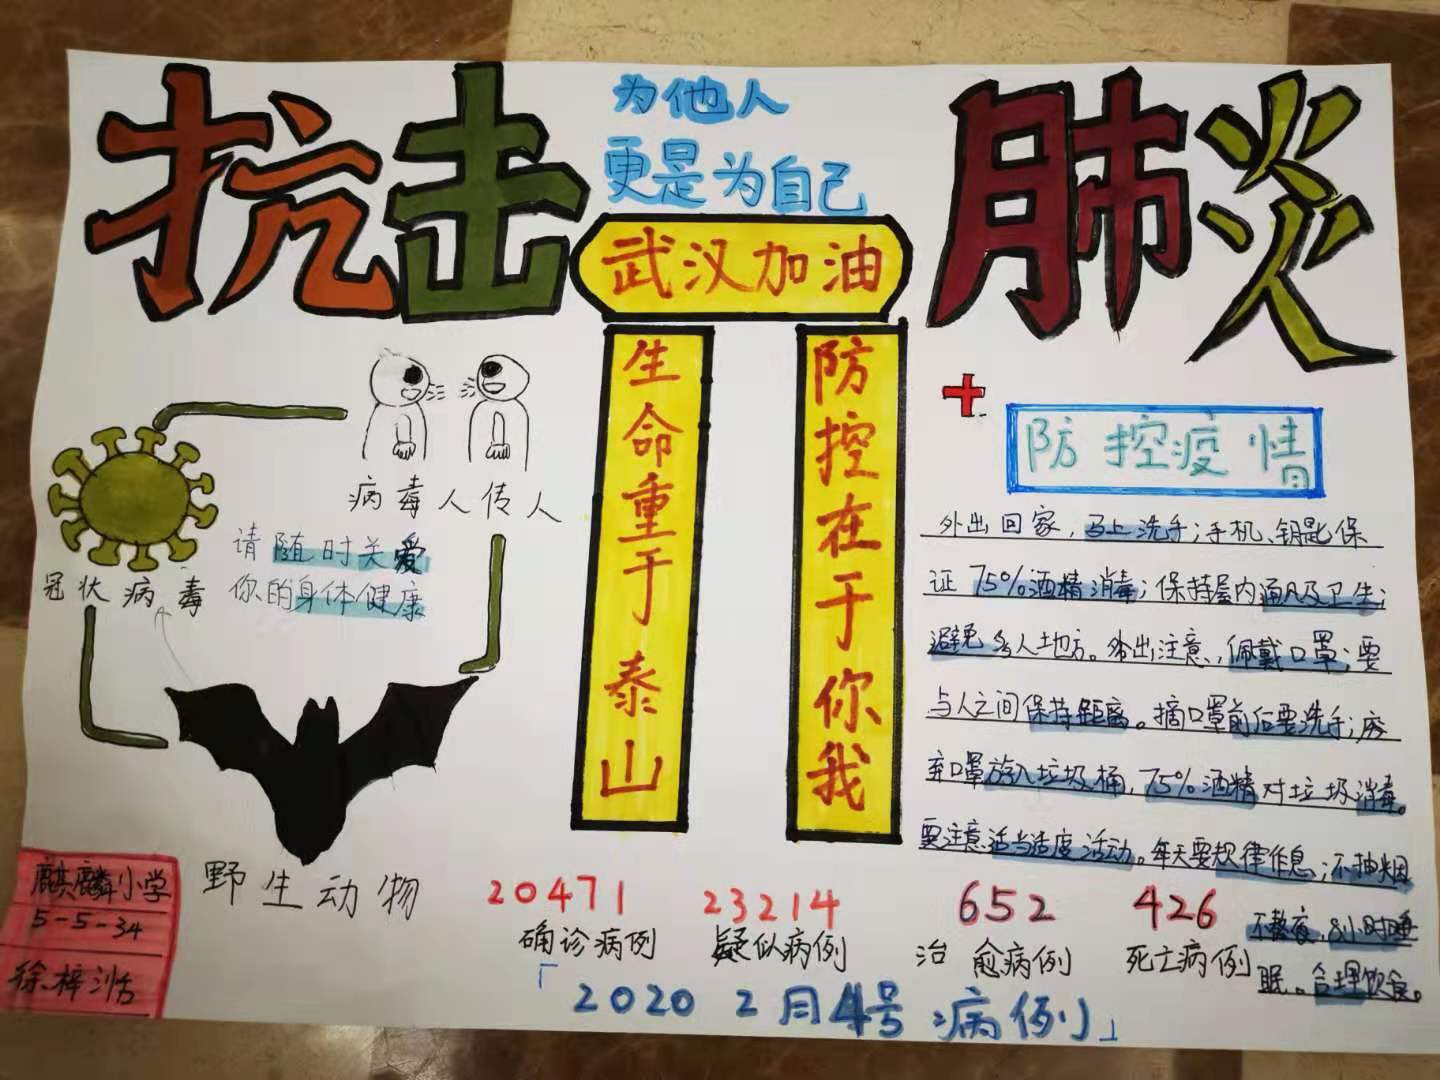 抗击
为他人
更是为自己
肺炎
武汉加油
生命重于泰山
防控在于你我
病毒人传人
请随时关爱
你的身体健康
冠状病毒
野生动物
麒麟小学
5-5-34
徐梓
防控疫情
外出回家，马上洗手；手机、钥匙保
证75%酒精消毒；保持屋内通风及卫生；
避免多人地方。外出注意，佩戴口罩；要
与人之间保持距离。摘口罩前后要洗手；废
弃口罩放入垃圾桶，75%酒精对垃圾消毒。
要注意适当适度活动。每天要规律作息；不抽烟
不熬夜，8小时睡
眠。合理饮食。
20471
确诊病例
23214
疑似病例
652
治愈病例
426
死亡病例
「2020 2月4号病例」